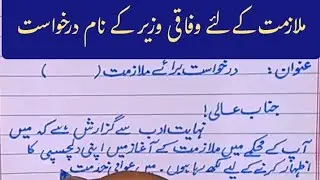 ملازمت کے لئے وفاقی وزیر کے نام درخواست
عنوان: درخواست برائے ملازمت ( )
جناب عالی!
نہایت ادب سے گزارش ہے کہ میں
آپ کے محکمے میں ملازمت کے آغاز میں اپنی دلچسپی کا
اظہار کرنے کے لیے لکھ رہا ہوں۔ میں عوامی خدمت